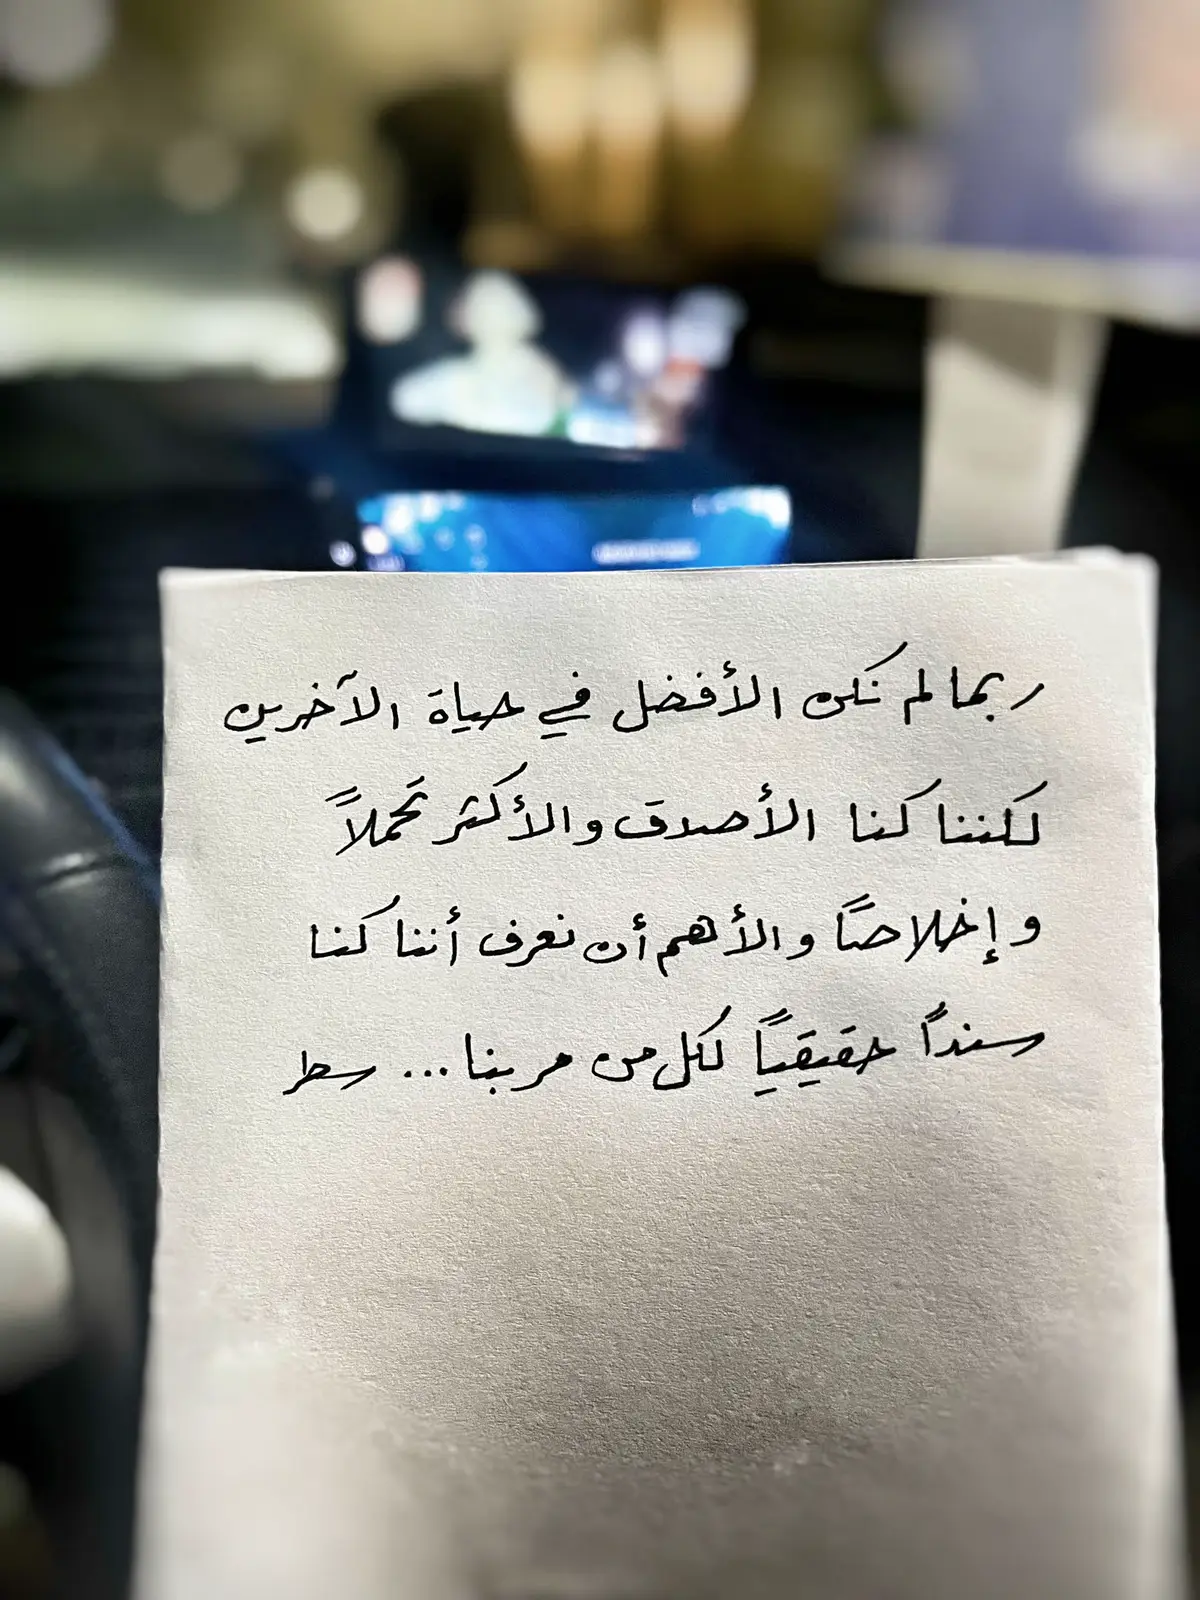 ربما لم نكن الأفضل في حياة الآخرين
لكننا كنا الأصدق والأكثر تحملاً
وإخلاصًا والأهم أن نعرف أننا كنا
سنداً حقيقياً لكل من مر بنا ... سطر